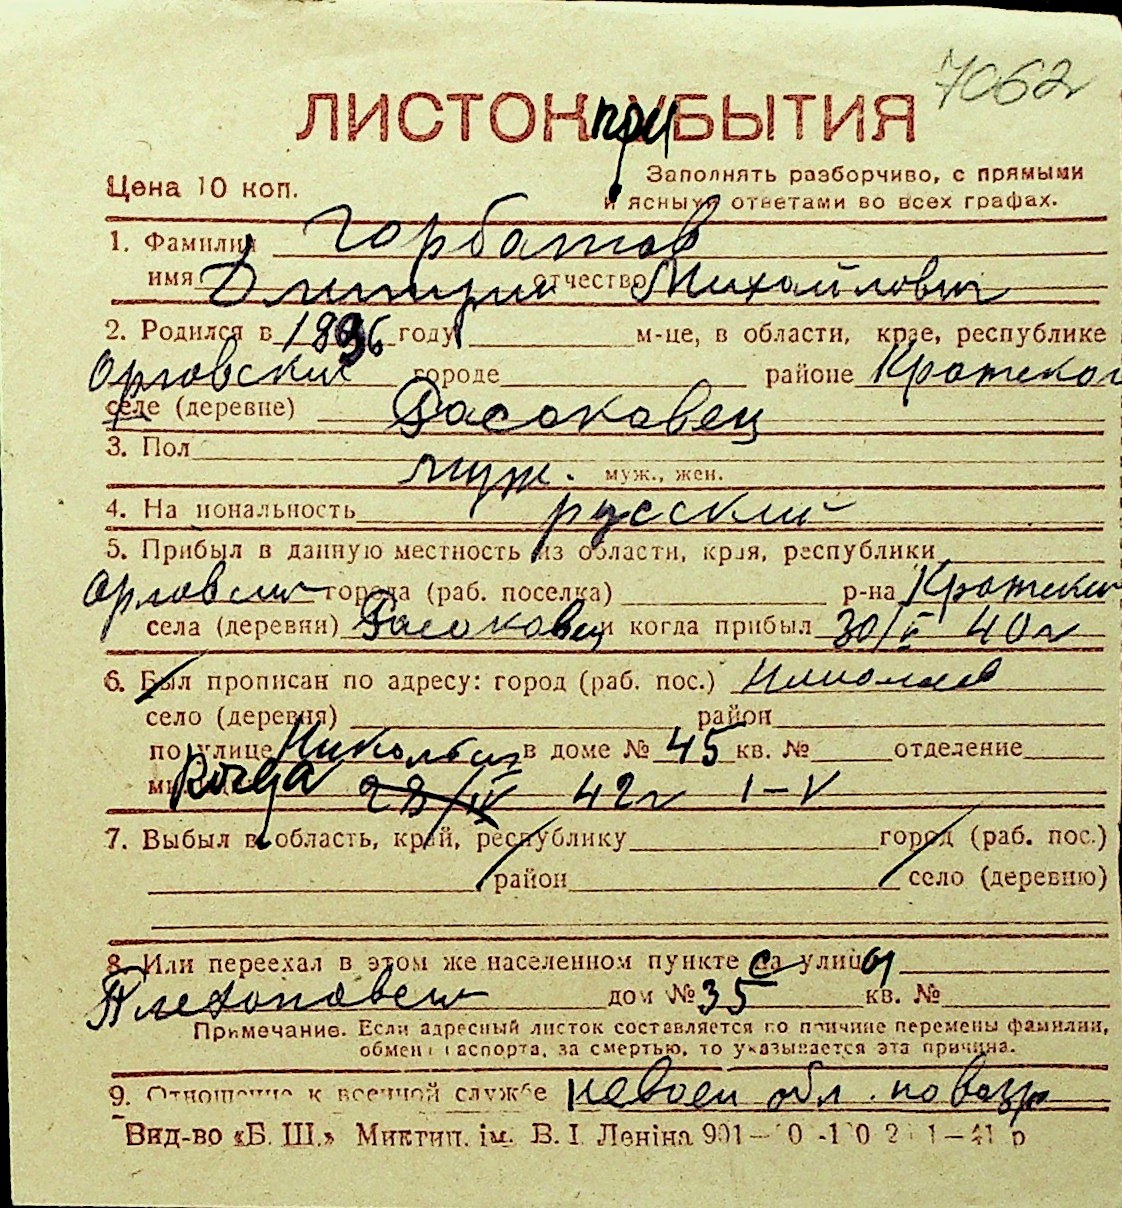 7062
ЛИСТОК при БЫТИЯ
Цена 10 коп.
Заполнять разборчиво, с прямыми
и ясными ответами во всех графах.
1. Фамилия Горбатов
имя Дмитрий отчество Михайлович
2. Родился в 1896 году м-це, в области, крае, республике
Орловский городе районе
селе (деревне)
3. Пол муж. муж., жен.
4. Национальность русский
5. Прибыл в данную местность из области, края, республики
Орловский города (раб. поселка) р-на
села (деревни) и когда прибыл 40г
6. Был прописан по адресу: город (раб. пос.) Николаев
село (деревня) район
по улице Никольск в доме № 45 кв. № отделение
когда 28/IV 42г I-V
7. Выбыл в область, край, республику город (раб. пос.)
район село (деревню)
8. Или переехал в этом же населенном пункте с улицы
Плехановская дом № 35 кв. №
Примечание. Если адресный листок составляется по причине перемены фамилии,
обмена паспорта, за смертью, то указывается эта причина.
9. Отношение к военной службе невоен обл. по возр
Вид-во «Б. Ш.» Миктип. ім. В. І. Леніна